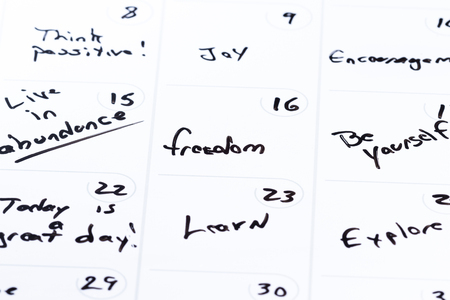 8
Think
possitive!
9
Joy
Encouragem
Live
in
abundance
15
16
freedom
Be
yourself
Today is
a
great day!
22
23
Learn
Explore
29
30